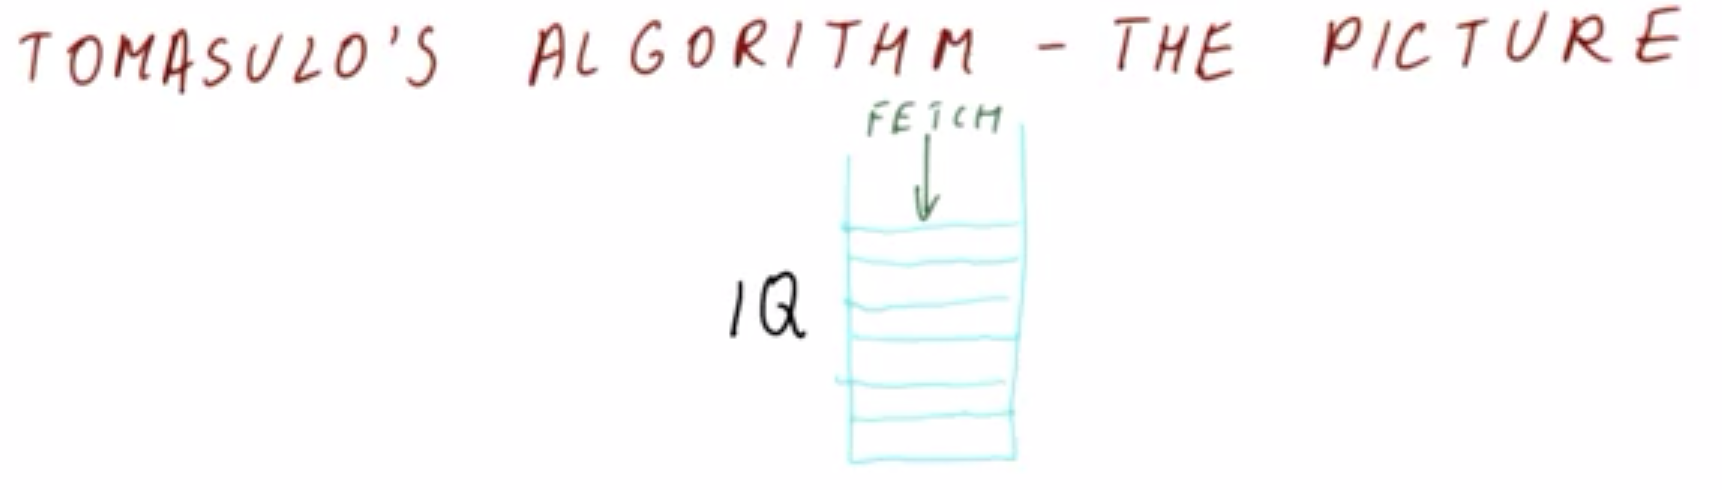 TOMASULO'S ALGORITHM - THE PICTURE
FETCH
IQ